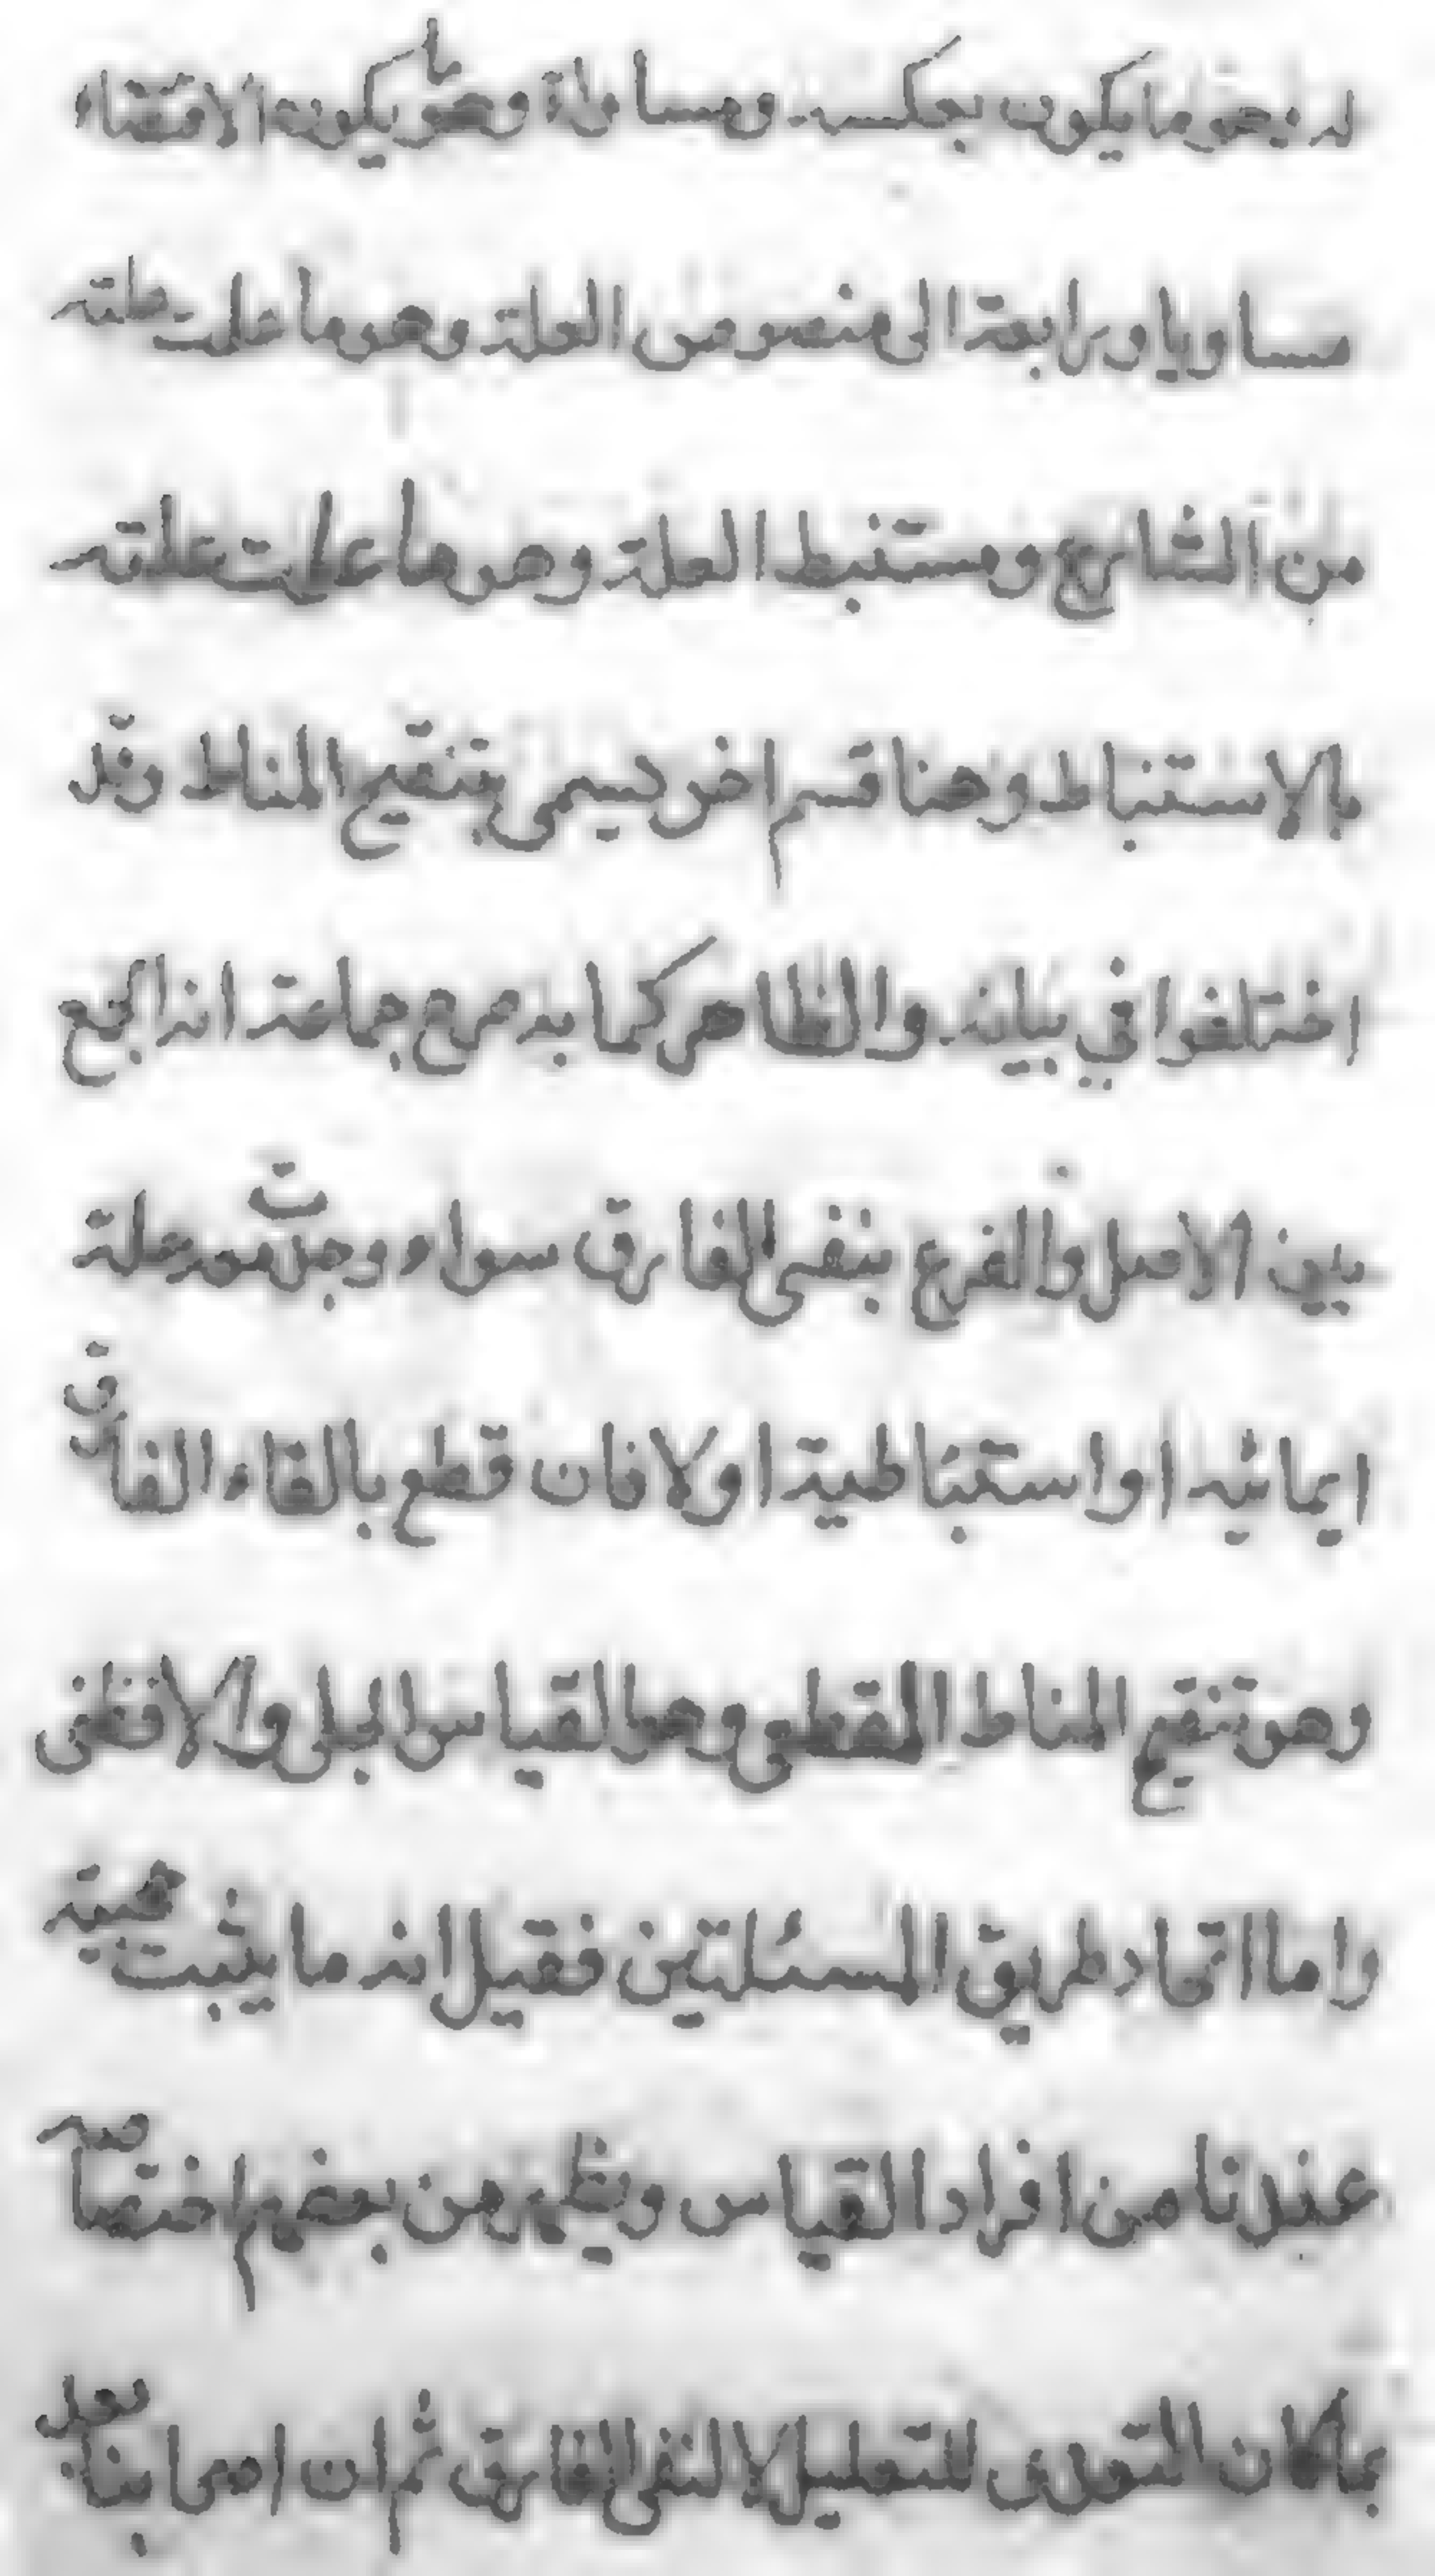 له وهو ما يكون بعكسه ومساواة وهو ما يكون الاقتضاء
مساويا ورابعة الى منصوص العلة وهو ما علمت علته
من الشارع ومستنبط العلة وهو ما علمت علته
بالاستنباط وهنا قسم اخر يسمى بتنقيح المناط وقد
اختلفوا في بيانه والظاهر كما به صرح جماعة انه الجمع
بين الاصل والفرع بنفى الفارق سواء وجدت معه علة
ايمائيه او استنباطية اولا فان قطع بالغاء الفارق
وهو تنقيح المناط القطعى وهو القياس الجلى والا فظنى
واما اتحاد طريق المسئلتين فقيل انه ما يثبت حجيته
عندنا من افراد القياس ويظهر من بعضهم اختصاصه
بما كان التعدى للتعليل لا لنفى الفارق ثم ان اصحابنا بعد